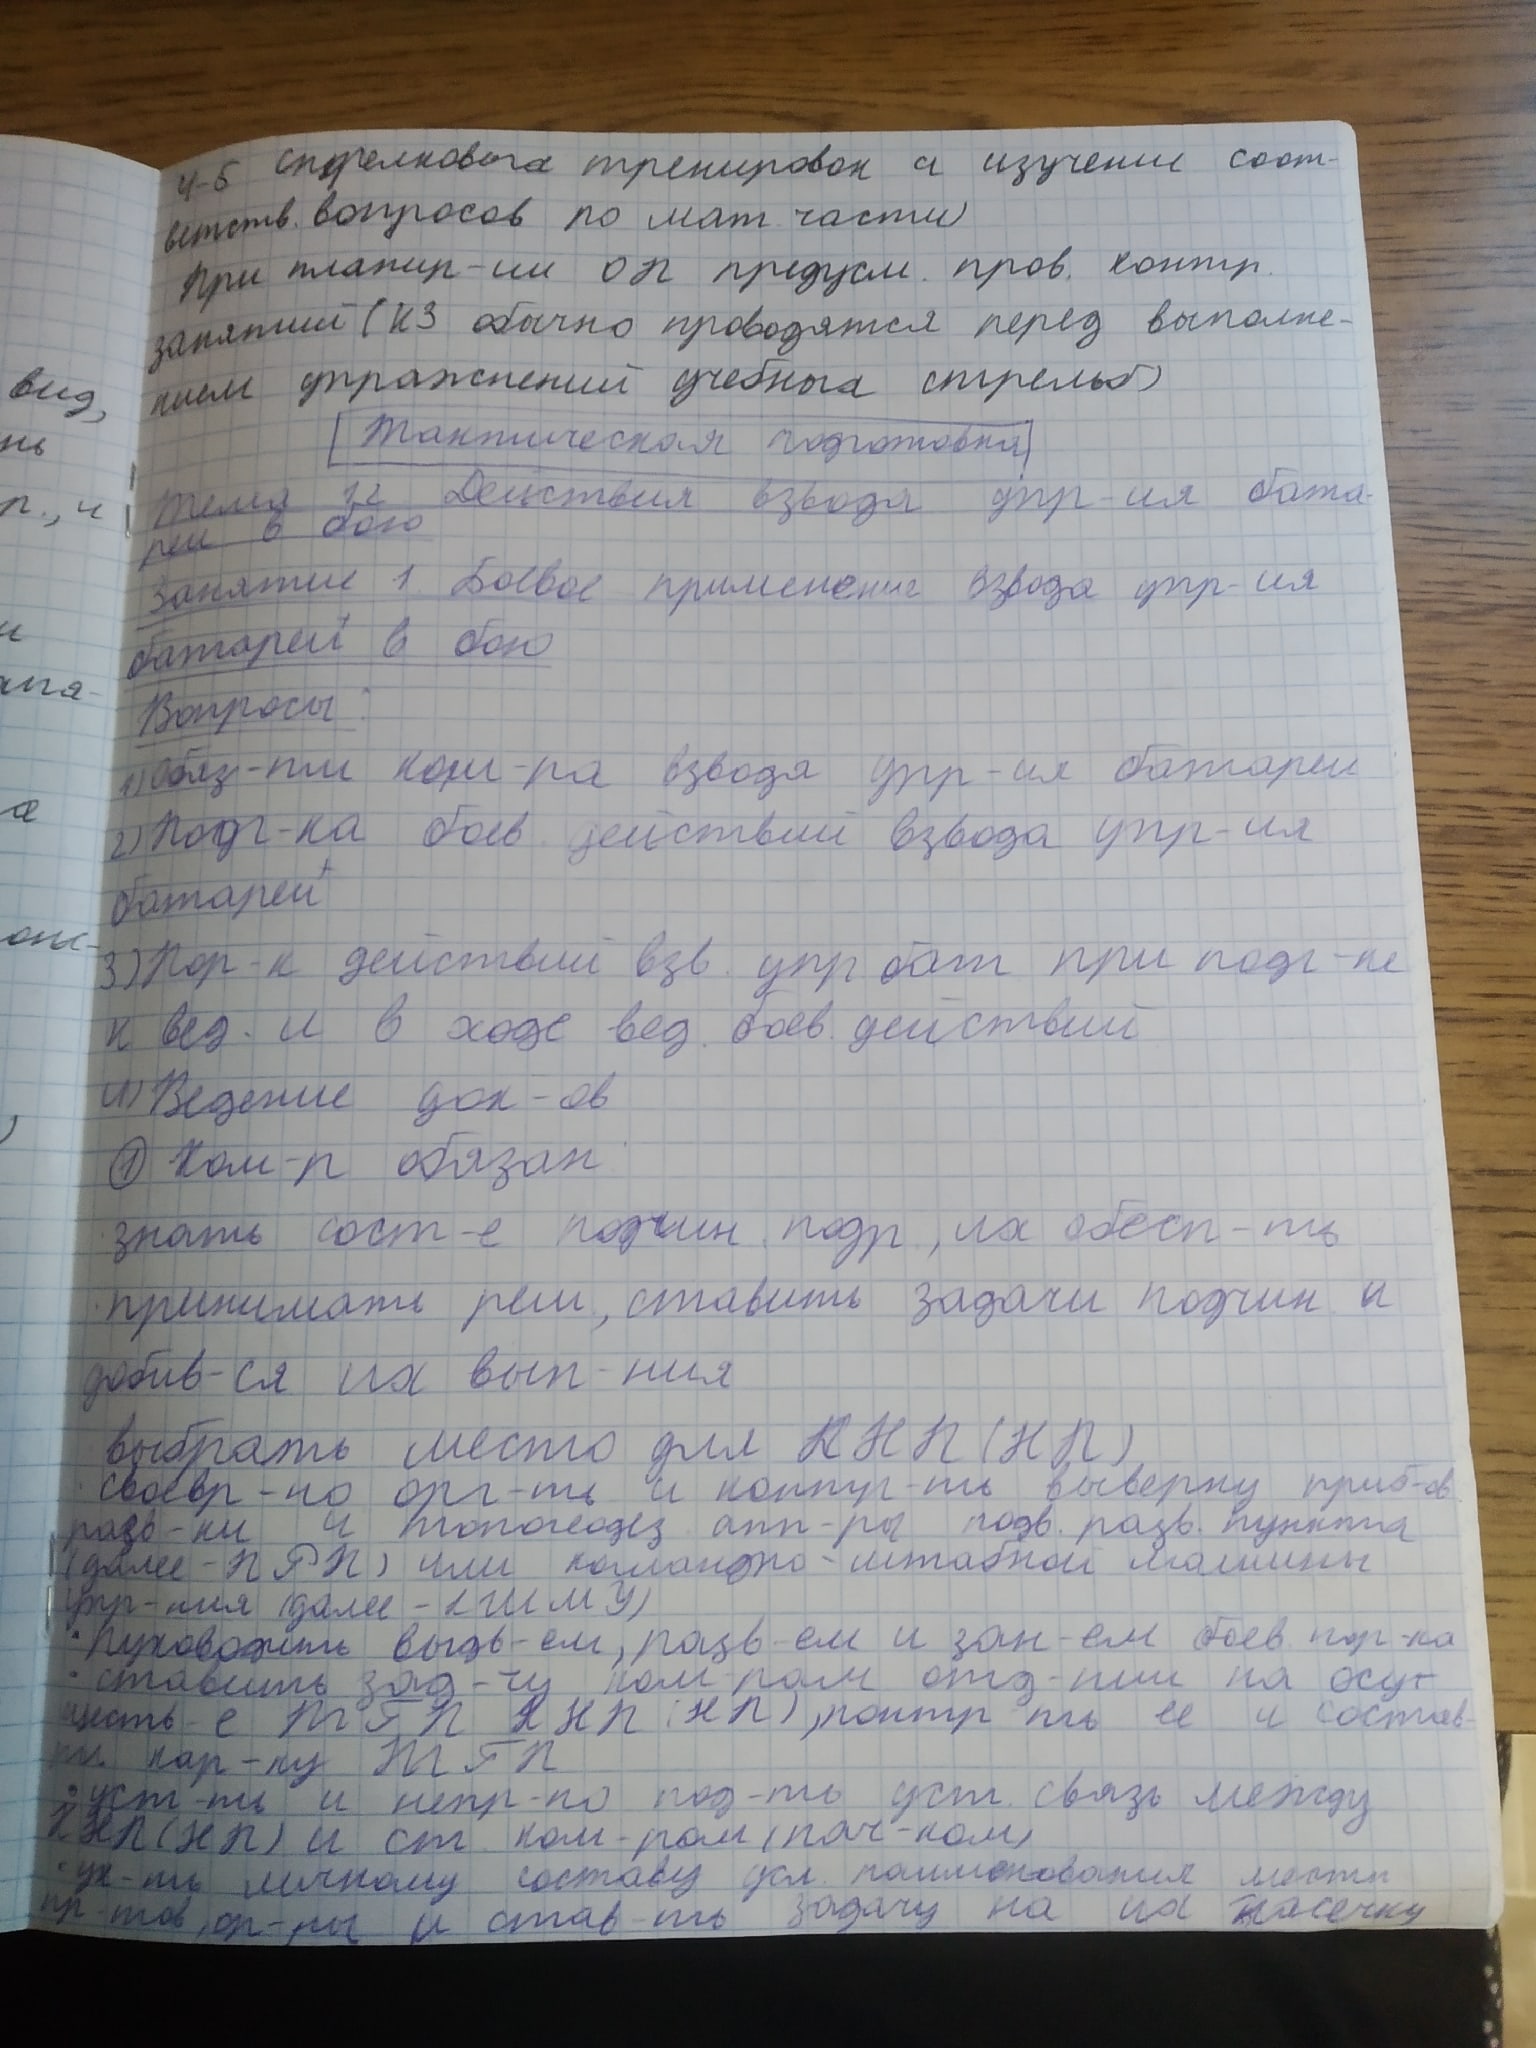 4-5 стрелковых тренировок и изучение соот-
ветств. вопросов по мат. части)
При планир-ии ОП предусм. пров. контр.
занятий (КЗ обычно проводятся перед выполне-
нием упражнений учебных стрельб)
Тактическая подготовка
Тема 12 Действия взвода упр-ия бата-
реи в бою
Занятие 1. Боевое применение взвода упр-ия
батареи в бою
Вопросы:
1) Обяз-ти ком-ра взвода упр-ия батареи
2) Подг-ка боев. действий взвода упр-ия
батареи
3) Пор-к действий взв. упр бат при подг-ке
к вед. и в ходе вед. боев. действий
4) Ведение док-ов
① Ком-р обязан
· знать сост-е подчин. подр., их обесп-ть
· принимать реш, ставить задачи подчин и
добив-ся их вып-ния
выбрать место для КНП (НП)
· своевр-но орг-ть и контр-ть выверку приб-ов
разв-ки и топогеодез. апп-ры подв. разв. пункта
(далее - ПРП) или командно-штабной машины
упр-ния (далее - КШМУ)
· Руководить выдв-ем, разв-ем и зан-ем боев. пор-ка
· ставить зад-чу ком-рам отд-нии на осу-
ществ-е ТГП КНП (НП), контр-ть ее и состав-
кар-ку ТГП
· уст-ть и непр-но под-ть уст. связь между
КНП (НП) и ст. ком-ром (нач-ком)
· ук-ть личному составу усл. наименования местн
пр-тов, ор-ры и став-ть задачу на их засечку
вид,
нь
р., и
и
а